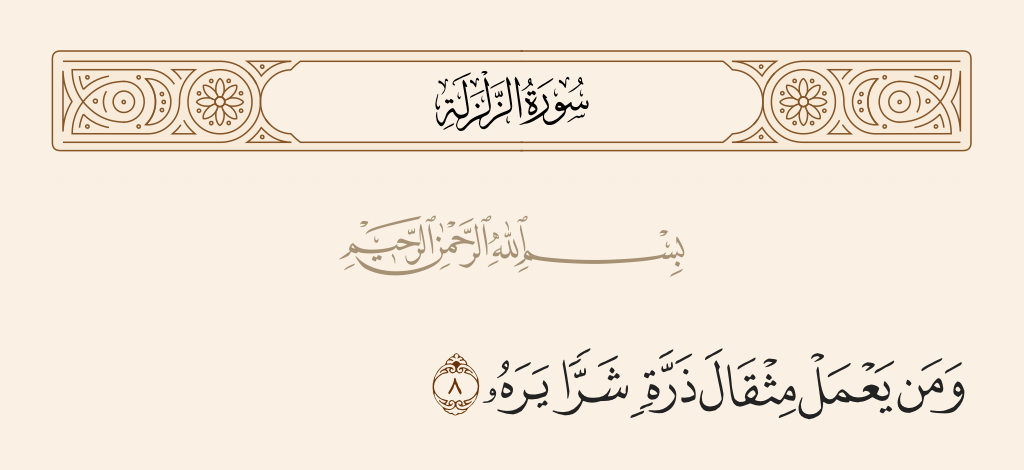 سُورَةُ الزَّلْزَلَةِ
بِسْمِ ٱللَّهِ ٱلرَّحْمَٰنِ ٱلرَّحِيمِ
وَمَن يَعْمَلْ مِثْقَالَ ذَرَّةٍ شَرًّا يَرَهُۥ ٨